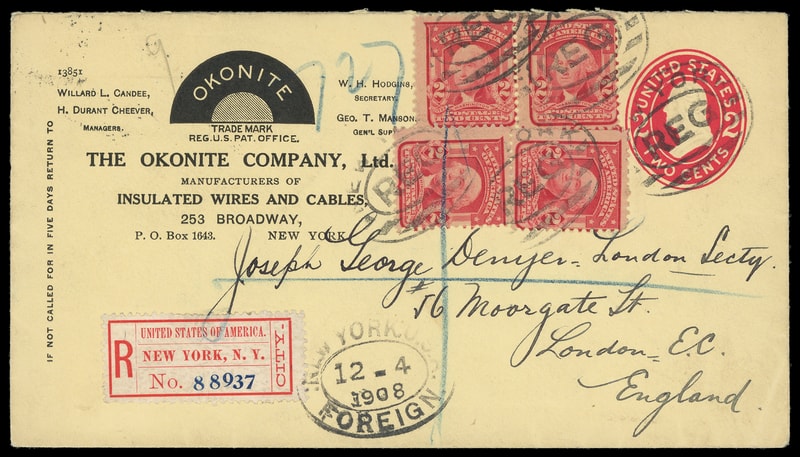 13851
WILLARD L. CANDEE,
H. DURANT CHEEVER,
MANAGERS.
OKONITE
TRADE MARK
REG. U.S. PAT. OFFICE.
W. H. HODGINS,
SECRETARY.
GEO. T. MANSON,
GEN'L SUP
THE OKONITE COMPANY, Ltd.
MANUFACTURERS OF
INSULATED WIRES AND CABLES,
253 BROADWAY,
P. O. BOX 1643. NEW YORK
IF NOT CALLED FOR IN FIVE DAYS RETURN TO
727
UNITED STATES
2 2
TWO CENTS
REG
Joseph George Denyer - London Secty.
#56 Moorgate St.
London - E.C.
England.
R
UNITED STATES OF AMERICA.
NEW YORK, N. Y.
No. 88937
CITY.
NEW YORK
12-4
1908
FOREIGN